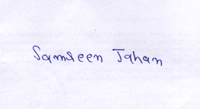 Samreen Jahan